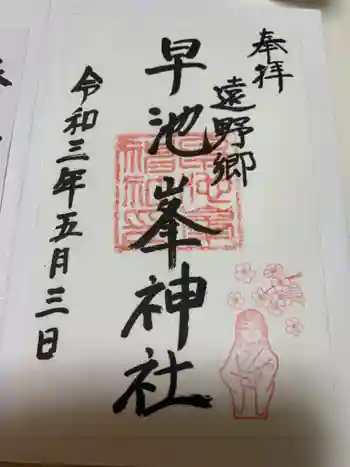 奉拝
遠野郷
早池峯神社
令和三年五月三日